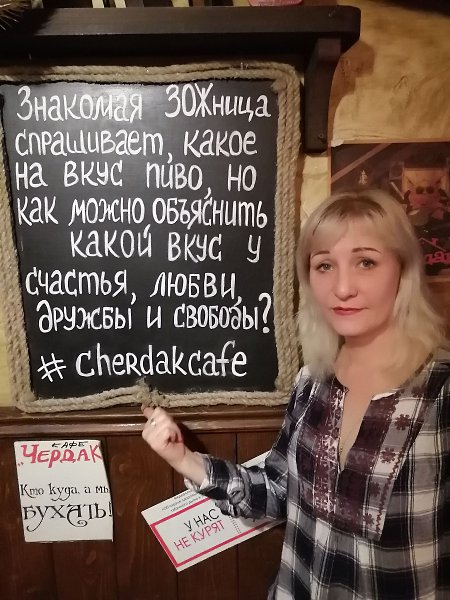 Знакомая ЗОЖница
спрашивает, какое
на вкус пиво, но
как можно объяснить
какой вкус у
счастья, любви,
дружбы и свободы?
# cherdakcafe
КАФЕ
„ЧЕРДАК
Кто куда, а мы
БУХАТЬ!
У НАС
НЕ КУРЯТ